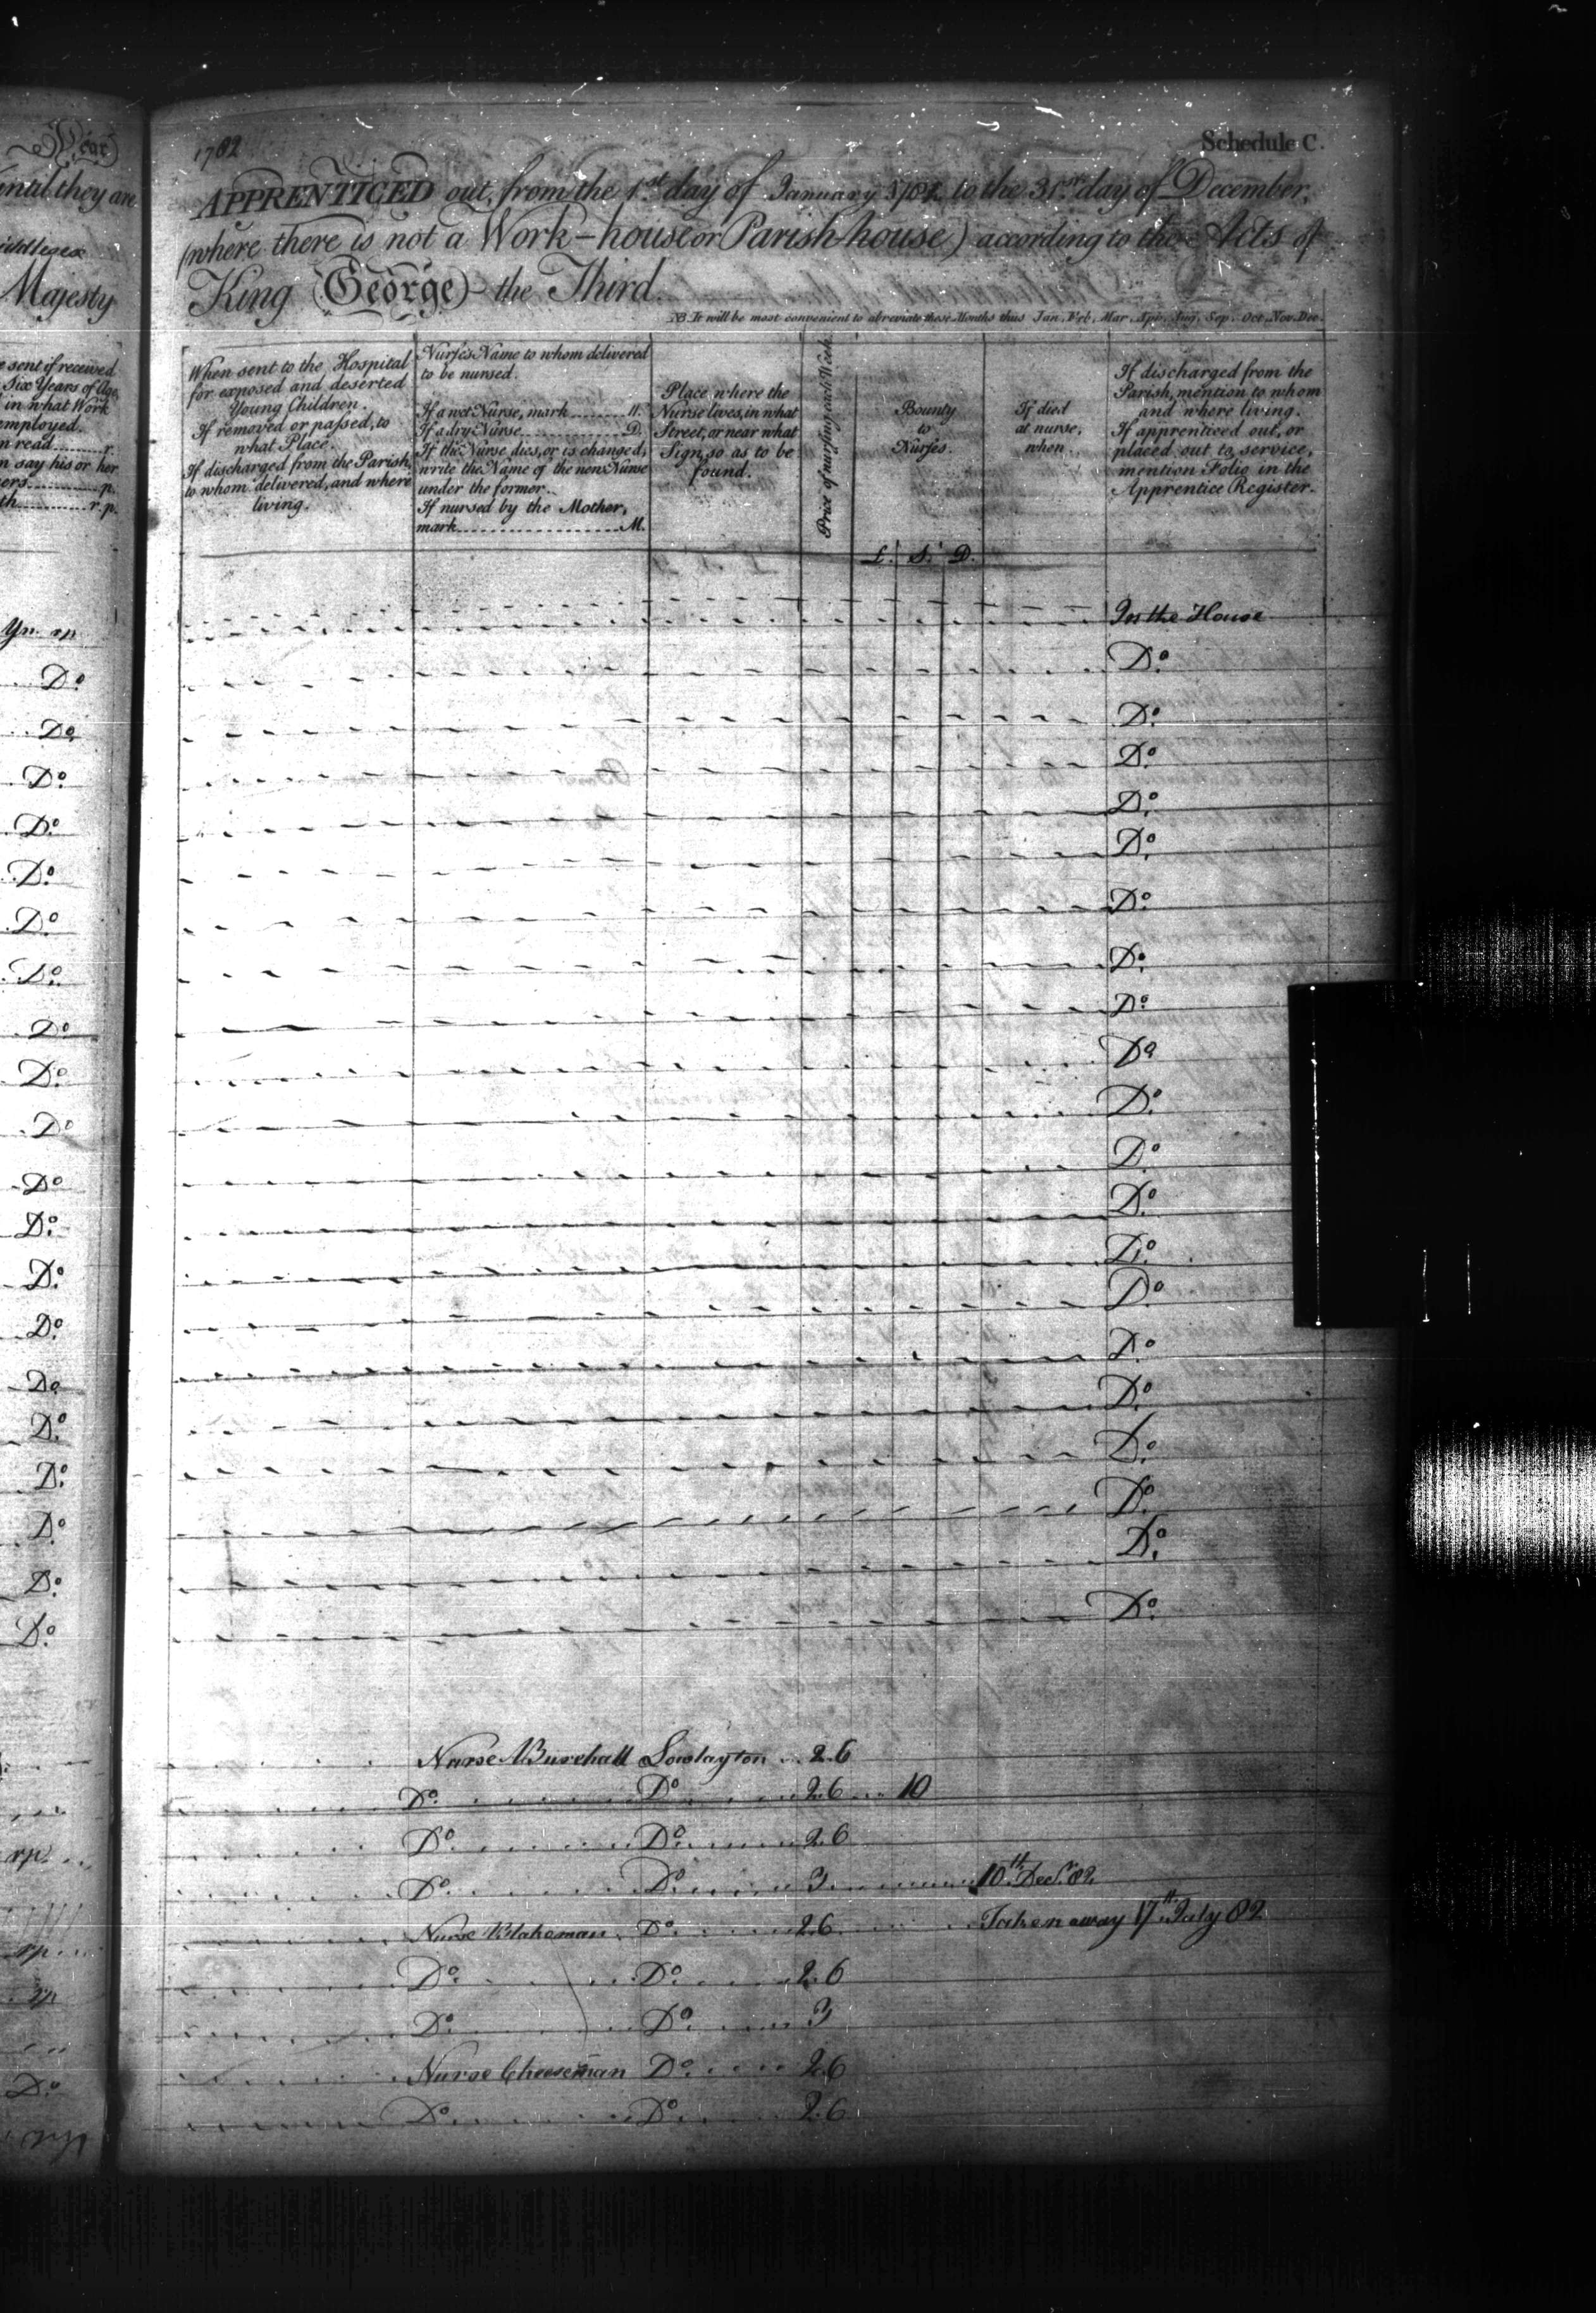 Year
until they are
Middlesex
Majesty
e sent if received
Six Years of Age,
in what Work
employed.
n read......r.
n say his or her
ers......p.
th......r.p.
Yn. rp
Do.
Do.
Do.
Do.
Do.
Do.
Do.
Do.
Do.
Do.
Do.
Do.
Do.
Do.
Do.
Do.
Do.
Do.
Do.
Do.
rp
rp
rp
Do.
1782
Schedule C.
APPRENTICED out, from the 1st day of January 1782 to the 31st day of December,
(where there is not a Work-house or Parish-house) according to the Acts of
King George the Third.
NB. It will be most convenient to abreviate these Months thus Jan. Feb. Mar. Apr. Aug. Sep. Oct. Nov. Dec.
When sent to the Hospital
for exposed and deserted
Young Children.
If removed or passed, to
what Place.
If discharged from the Parish,
to whom delivered, and where
living.
Nurse's Name to whom delivered
to be nursed.
If a wet Nurse, mark......W.
If a dry Nurse......D.
If the Nurse dies, or is changed,
write the Name of the new Nurse
under the former.
If nursed by the Mother,
mark......M.
Place where the
Nurse lives, in what
Street, or near what
Sign, so as to be
found.
Price of nursing each Week.
Bounty
to
Nurses.
£. S. D.
If died
at nurse,
when.
If discharged from the
Parish, mention to whom
and where living.
If apprenticed out, or
placed out to service,
mention Folio in the
Apprentice Register.
In the House
Do.
Do.
Do.
Do.
Do.
Do.
Do.
Do.
Do.
Do.
Do.
Do.
Do.
Do.
Do.
Do.
Do.
Do.
Do.
Do.
Nurse Burchall Lowlayton 2.6
Do. Do. 2.6 10
Do. Do. 2.6
Do. Do. 3 10th Decr. 82
Nurse Blakeman Do. 2.6 Taken away 17th July 82
Do. Do. 2.6
Do. Do. 3
Nurse Cheeseman Do. 2.6
Do. Do. 2.6